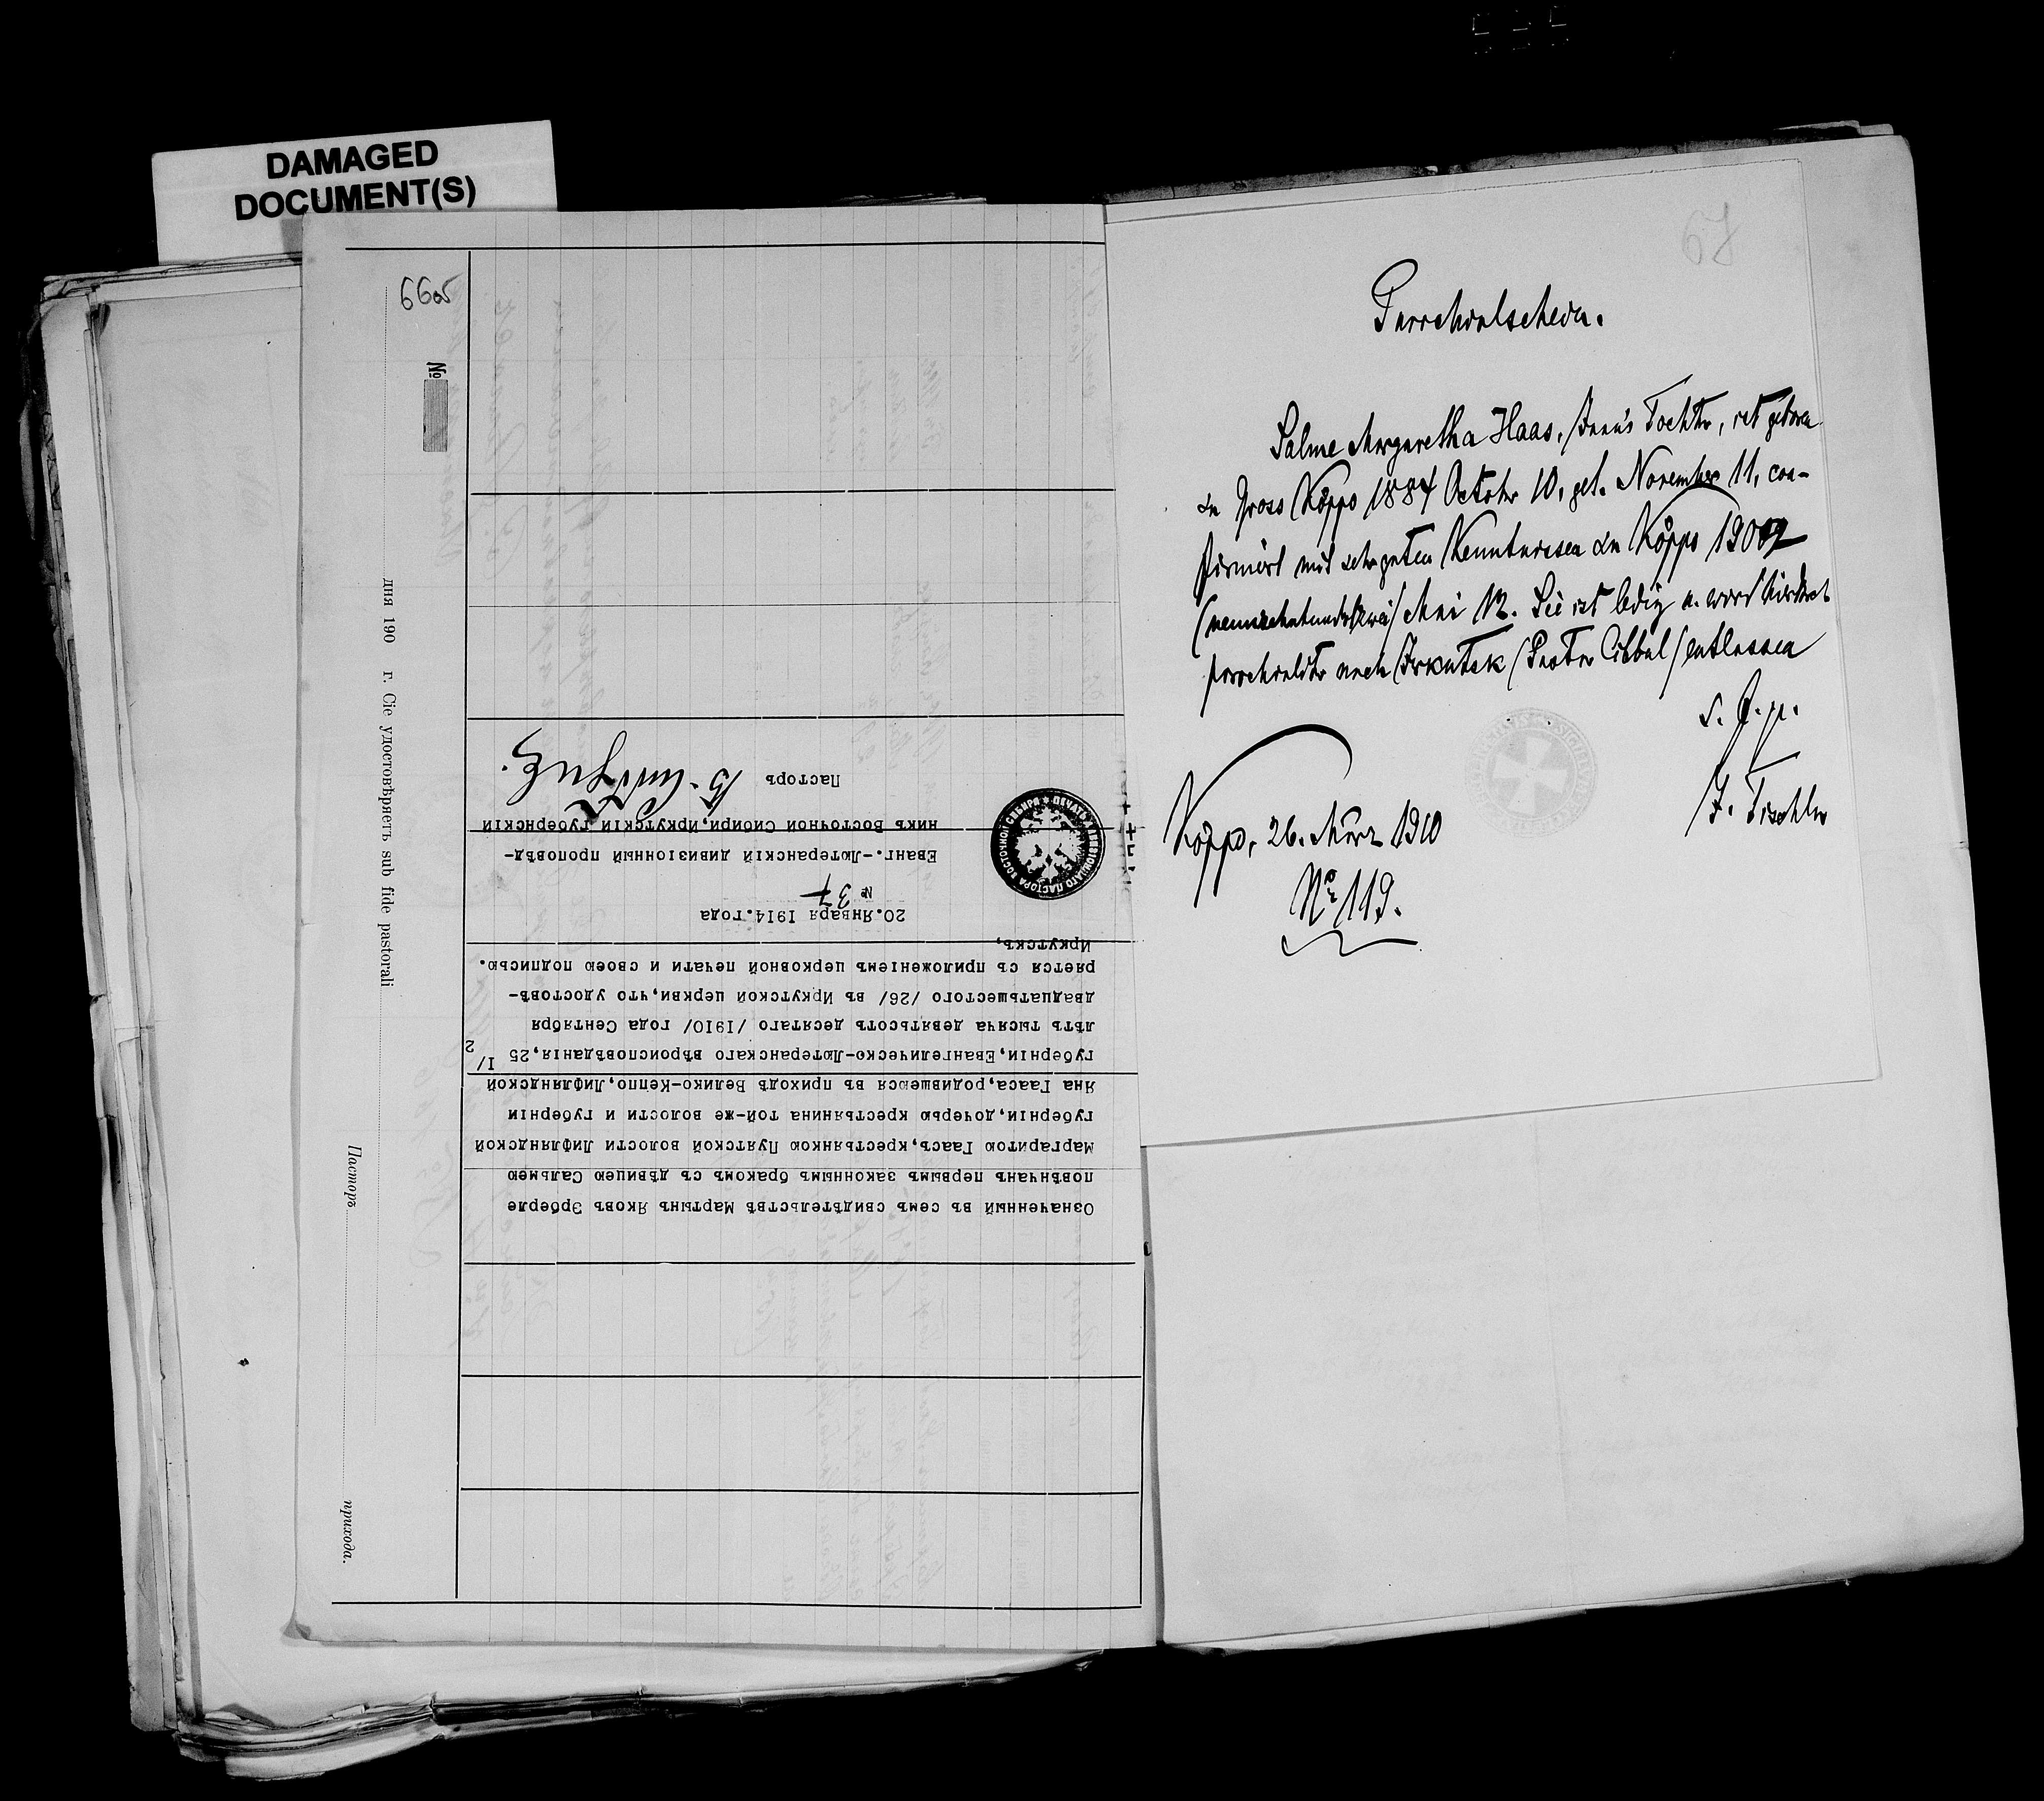 DAMAGED
DOCUMENT(S)
66об
№
дня 190 г. Сіе удостовѣряетъ sub fide pastorali
Пасторъ
прихода.
Означенный въ семъ свидѣтельствѣ Мартынъ Яковъ Эрберле
повѣнчанъ первымъ законнымъ бракомъ съ дѣвицею Сальмею
Маргаритою Гаасъ, крестьянкою Пуятской волости Лифляндской
губерніи, дочерью крестьянина той-же волости и губерніи
Яна Гааса, родившеюся въ приходѣ Велико-Кеппо, Лифляндской
губерніи, Евангелическо-Лютеранскаго вѣроисповѣданія, 25 I/2
лѣтъ тысяча девятьсотъ десятаго /1910/ года Сентября
двадцатьшестого /26/ въ Иркутской церкви, что удостовѣ-
ряется съ приложеніемъ церковной печати и своею подписью.
Иркутскъ,
20. Января 1914. года
№ 37
Еванг.-Лютеранскій дивизіонный проповѣд-
никъ Восточной Сибири, Иркутскій губернскій
Пасторъ
67
Parochialschein.
Salme Margaretha Haas, Jaan's Tochter, ist geboren
in Gross Köppo 1884 October 10, get. November 11, con-
firmirt mit sehr guten Kenntnissen in Köppo 1902
(neunzehnhundertzwei) Mai 12. Sie ist ledig u. wird hierdurch
parochialiter nach Irkutsk (Pastor Cibbul) entlassen
s. f. p.
J. Tischler
Köppo, 26. März 1910
№ 119.